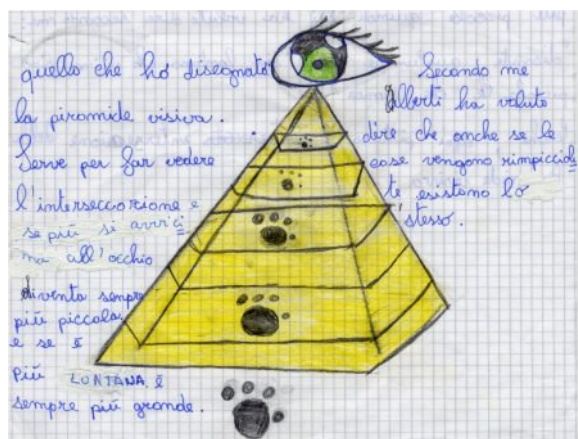 quello che ho disegnato
la piramide visiva.
Serve per far vedere
l'interseccorione e
se più si avvici
na all'occhio
diventa sempre
più piccola,
e se è
più LONTANA è
sempre più grande.
Secondo me
Alberti ha voluto
dire che anche se le
cose vengono rimpiccioli
te esistono lo
stesso.